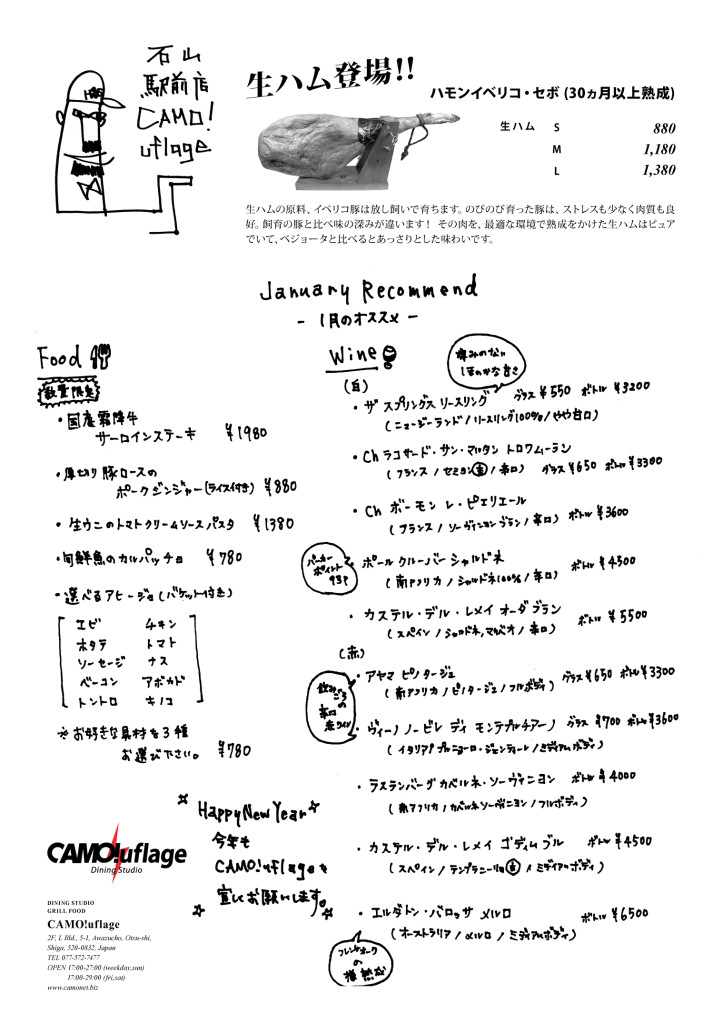 石山
駅前店
CAMO!
uflage
生ハム登場!!
ハモンイベリコ・セボ (30ヵ月以上熟成)
生ハム S 880
M 1,180
L 1,380
生ハムの原料、イベリコ豚は放し飼いで育ちます。のびのび育った豚は、ストレスも少なく肉質も良
好。飼育の豚と比べ味の深みが違います！ その肉を、最適な環境で熟成をかけた生ハムはピュア
でいて、ベジョータと比べるとあっさりとした味わいです。
January Recommend
- 1月のオススメ -
Food
数量限定
・国産霜降牛
サーロインステーキ ¥1980
・厚切り豚ロースの
ポークジンジャー(ライス付き) ¥880
・生ウニのトマトクリームソースパスタ ¥1380
・旬鮮魚のカルパッチョ ¥780
・選べるアヒージョ(バケット付き)
エビ チキン
ホタテ トマト
ソーセージ ナス
ベーコン アボカド
トントロ キノコ
※お好きな具材を3種
お選び下さい。 ¥780
Wine
(白)
ほのかな甘さ
・ザ スプリングス リースリング グラス ¥550 ボトル ¥3200
(ニュージーランド / リースリング100% / やや甘口)
・Ch ラコザード・サン・マルタン トロワムーラン
(フランス / セミヨン主 / 辛口) グラス ¥650 ボトル ¥3300
・Ch ボーモン レ・ピエリエール
(フランス / ソーヴィニヨンブラン / 辛口) ボトル ¥3600
パーカー
ポイント
93P
・ポール クルーバー シャルドネ
(南アフリカ / シャルドネ100% / 辛口) ボトル ¥4500
・カステル・デル・レメイ オーダ ブラン
(スペイン / シャルドネ,マカベオ / 辛口) ボトル ¥5500
(赤)
飲みごろ
の
辛口
赤ワイン
・アヤマ ピノタージュ グラス ¥650 ボトル ¥3300
(南アフリカ / ピノタージュ / フルボディ)
・ヴィーノ ノービレ ディ モンテプルチアーノ グラス ¥700 ボトル ¥3600
(イタリア / プルニョーロ・ジェンティーレ / ミディアムボディ)
・ラステンバーグ カベルネ・ソーヴィニヨン ボトル ¥4000
(南アフリカ / カベルネソーヴィニヨン / フルボディ)
・カステル・デル・レメイ ゴディム ブル ボトル ¥4500
(スペイン / テンプラニーリョ主 / ミディアムボディ)
・エルダトン・バロッサ メルロ ボトル ¥6500
(オーストラリア / メルロ / ミディアムボディ)
フレンチオーク
の
樽熟成
Happy New Year
今年も
CAMO!uflageを
宜しくお願いします。
CAMO!uflage
Dining Studio
DINING STUDIO
GRILL FOOD
CAMO!uflage
2F, L Bld., 5-1, Awazucho, Otsu-shi,
Shiga, 520-0832, Japan
TEL 077-572-7477
OPEN 17:00-27:00 (weekday,sun)
17:00-29:00 (fri,sat)
www.camonet.biz